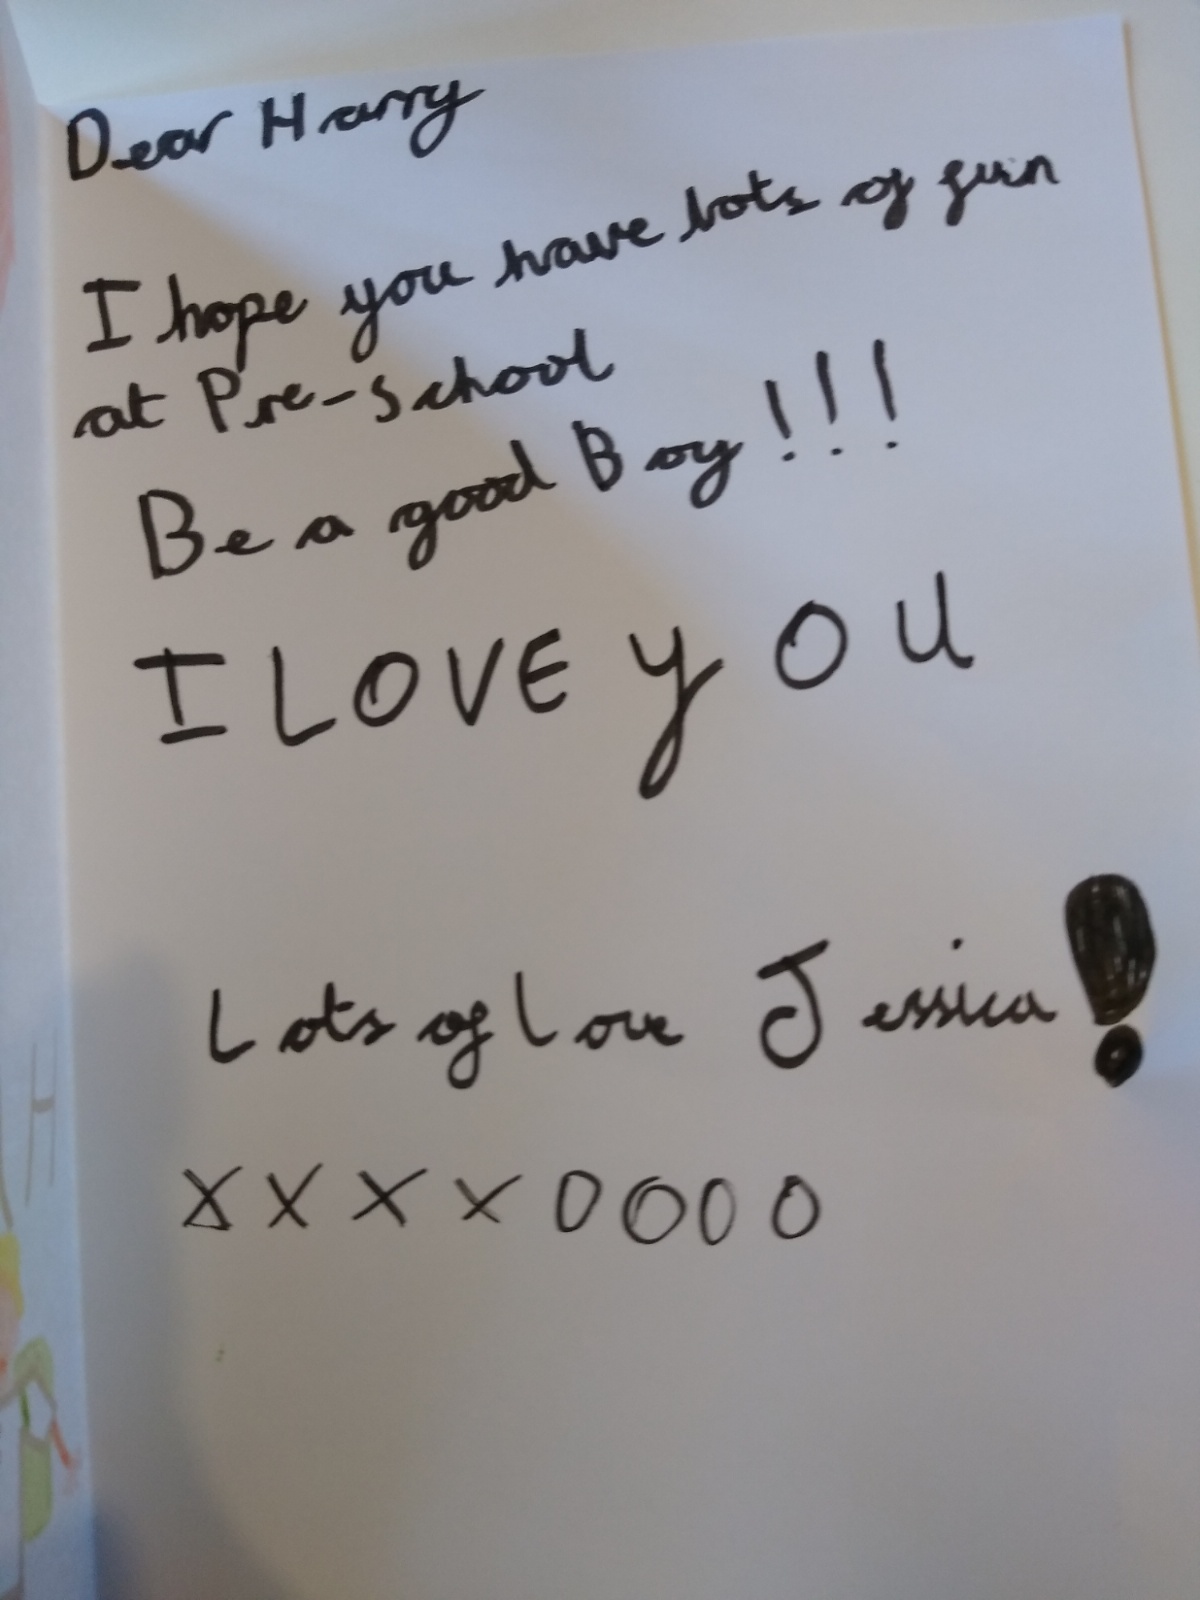 Dear Harry
I hope you have lots of fun
at Pre-School
Be a good Boy!!!
I LOVE YOU
Lots of love Jessica!
X X X X O O O O